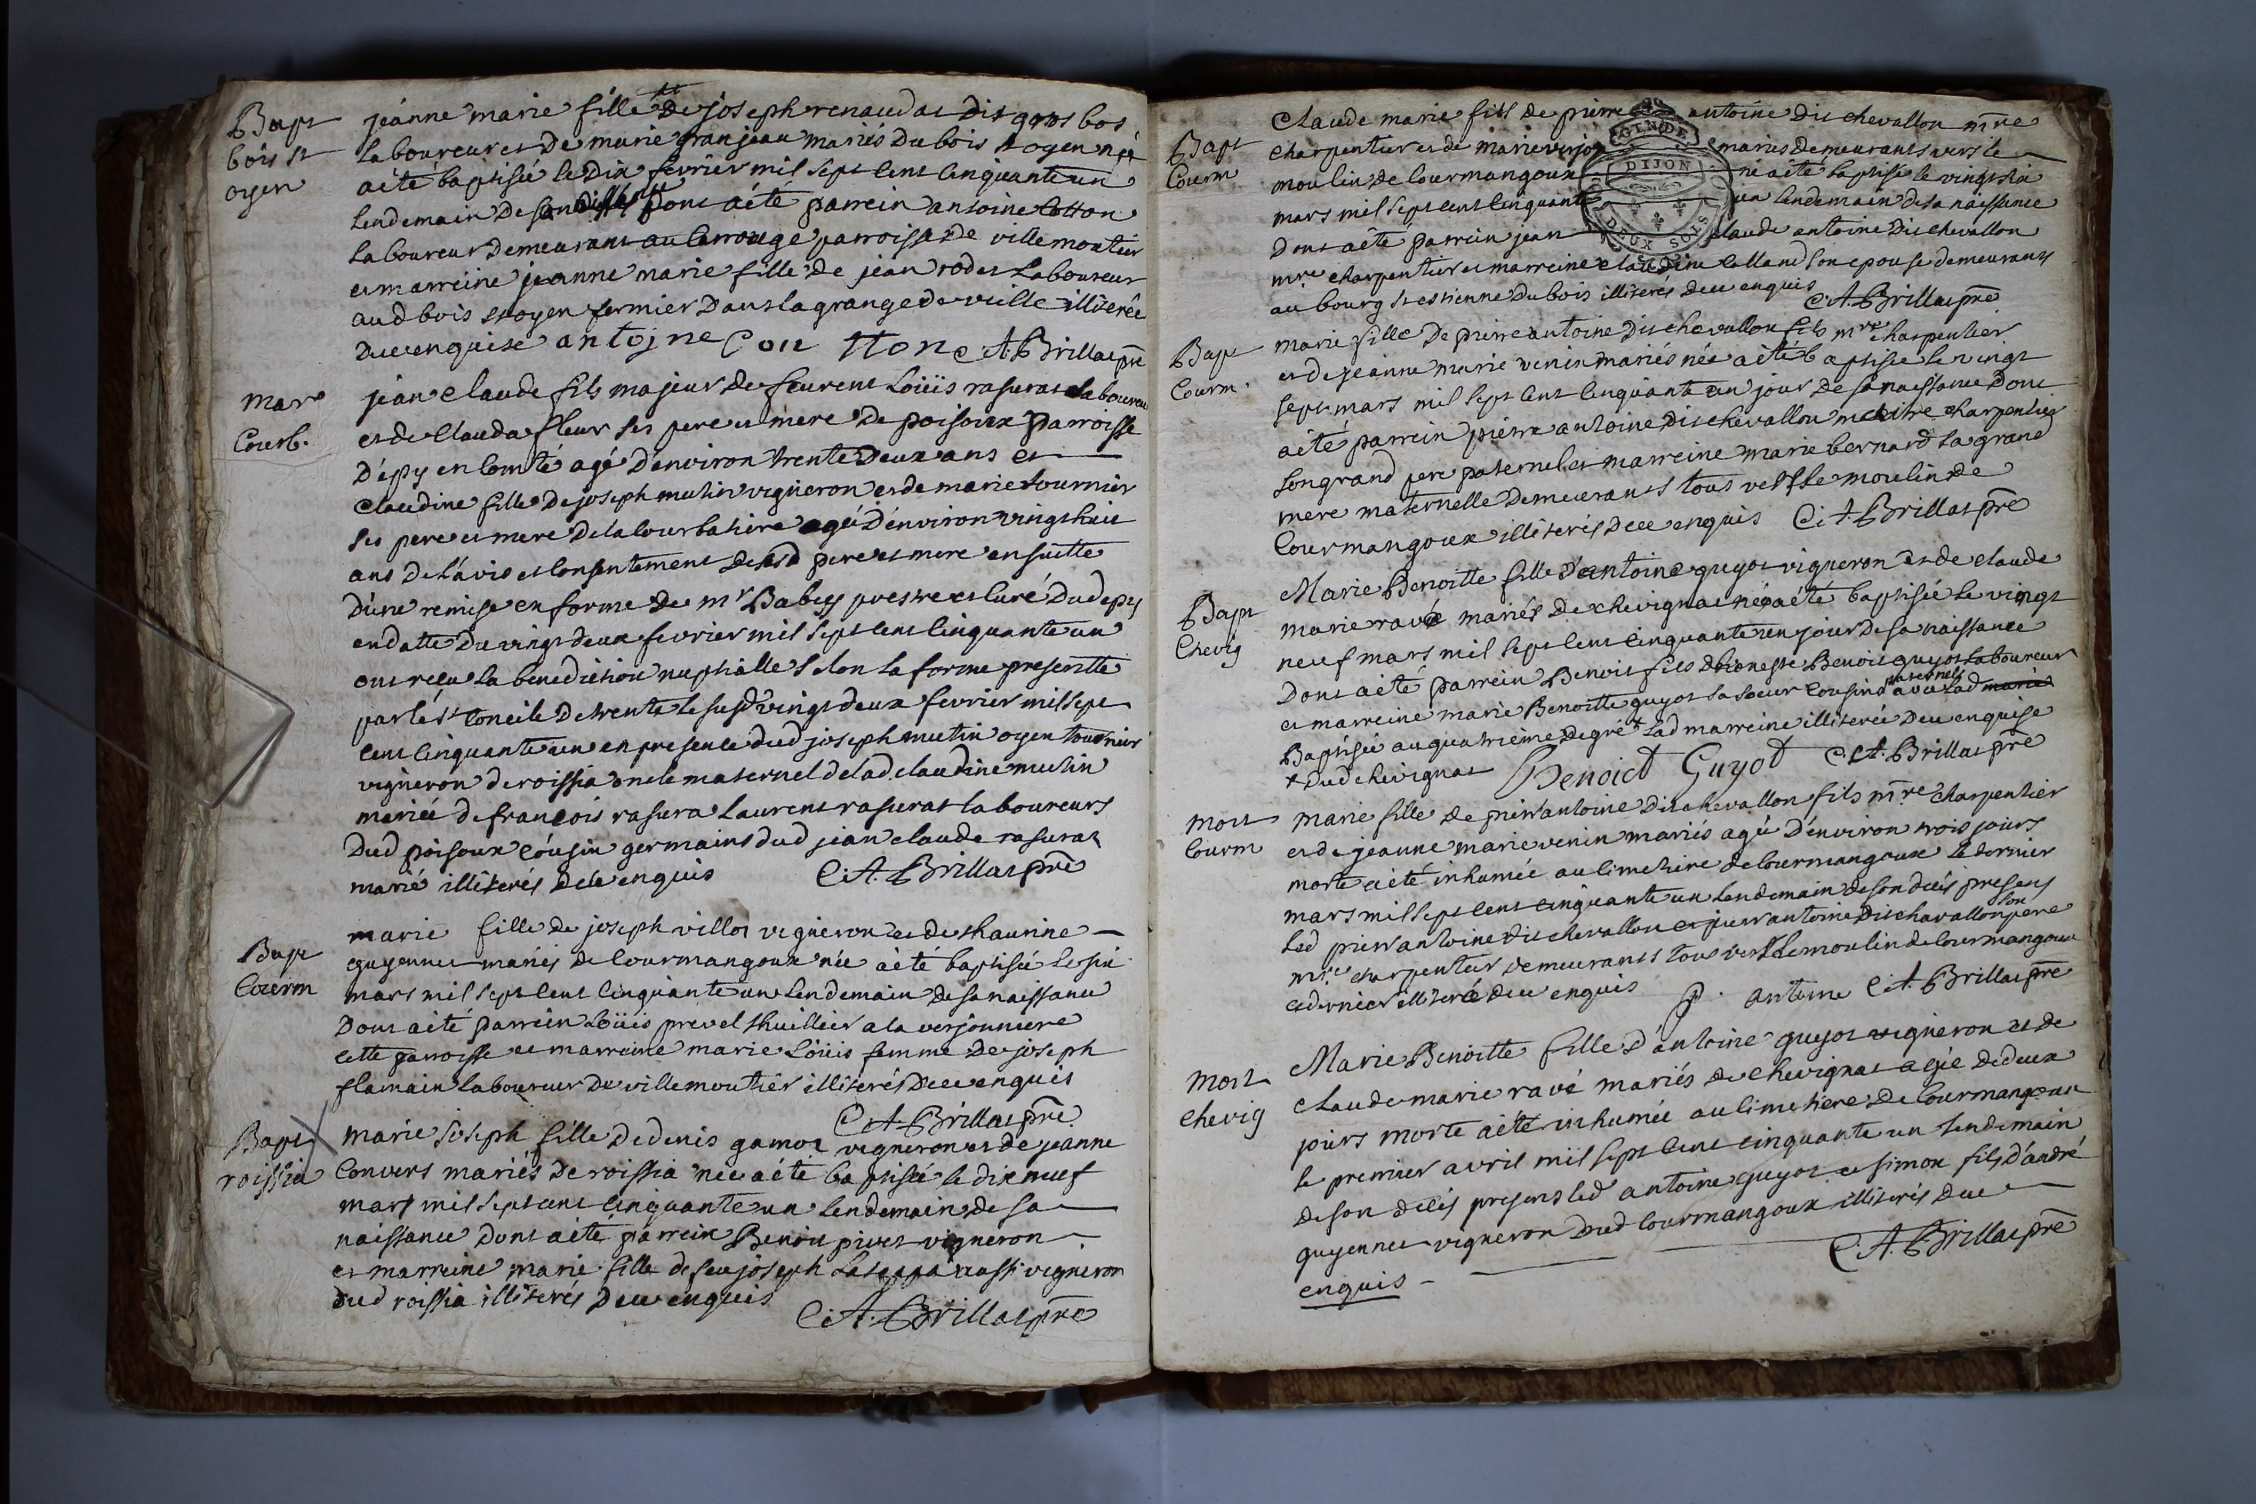 Bapt
bois st
oyen
jéanne marie fille de joseph renaud dit gros bos
laboureur et de marie granjean mariés du bois st oyen née
a été baptisée le dix fevrier mil sept cent cinquante un
lendemain de sa naissance dont a été parrein antoine Cotton
laboureur demeurant au larrouge parroisse de villemoutier
et marreine jeanne marie fille de jean rodet laboureur
aud bois st oyen fermier dans la grange de veille illiterée
duee enquise antojne Cou tton C. A. Brillat pre
Mar
Courb.
jean claude fils majeur de feu rent Loüis rasurat laboureur
et de Clauda fleur ses pere et mere de poisoux parroisse
D'épy en Comté agé d'environ trente deux ans et
Claudine fille de joseph mutin vigneron et de marie tournier
ses pere et mere de la Courbatiere agée d'environ vingt huit
ans de l'avis et Consentement desd pere et mere en suitte
d'une remise en forme de mr Babey prestre et Curé dud epy
en datte du vingt deux fevrier mil sept cent cinquante un
ont reçu la benediction nuptialle selon la forme presentte
par le st Concile de trente le susd vingt deux fevrier mil sept
cent cinquante un en presence dud joseph mutin oyen tournier
vigneron de roissia oncle maternel de lad claudine mutin
mariée de françois rasura Laurent rasurat laboureurs
dud poisoux cousin germains dud jean claude rasurat
marié illiterés deüe enquis C. A. Brillat pre
Bapt
Courm
marie fille de joseph villot vigneron et de thaurine
guyennet mariés de Courmangoux née a été baptisée le six
mars mil sept cent cinquante un lendemain de sa naissance
dont a été parrein Loüis prevel thuillier a la verjonniere
cette parroisse et marreine marie Loüis femme de joseph
flamain laboureur de villemoutier illiterés duee enquis
C. A. Brillat pre
Bapt
roissia
marie joseph fille de denis gamot vigneron et de jeanne
Convers mariés de roissia née a été baptisée le dix neuf
mars mil sept cent cinquante un lendemain de sa
naissance dont a été parrein Benoit pivet vigneron
et marreine marie fille de feu joseph aussi vigneron
dud roissia illiterés duee enquis
C. A. Brillat pre
Bapt
Courm
Claude marie fils de pierre antoine dit chevallon mtre
charpentier et de marie verjon mariés demeurants vers le
moulin de Courmangoux né a été baptisé le vingt six
mars mil sept cent cinquante un lendemain de sa naissance
Dont a été parrein jean claude antoine dit chevallon
mtre charpentier et marreine claudine Colland son epouse demeurants
au bourg st estienne du bois illiterés duee enquis
C. A. Brillat pre
GEN DE
DIJON
DEUX SOLS
Bapt
Courm.
marie fille de pierre antoine dit chevallon fils mtre charpentier
et de jeanne marie venin mariés née a été baptisée le vingt
sept mars mil sept cent cinquante un jour de sa naissance Dont
a été parrein pierre antoine dit chevallon maitre charpentier
son grand pere paternel et marreine marie bernard sa grand
mere maternelle demeurants tous vers le moulin de
Courmangoux illiterés duee enquis C. A. Brillat pre
Bapt
Chevig
Marie Benoitte fille d'antoine guyot vigneron et de claude
marie ravé mariés de chevignat née a été baptisée le vingt
neuf mars mil sept cent cinquante un jour de sa naissance
Dont a été parrein Benoit fils d'honeste Benoit guyot laboureur
et marreine marie Benoitte guyot sa soeur cousins paternels avec lad marie
Baptisée au quatrieme degré + lad marreine illiterée duee enquise
+ dud chevignat Benoict Guyot C. A. Brillat pre
mort
Courm
marie fille de pierre antoine dit chevallon fils mtre charpentier
et de jeanne marie venin mariés agée d'environ trois jours
morte a été inhumée au cimetiere de Courmangoux le dernier
mars mil sept cent cinquante un lendemain de son décés presens
led pierre antoine dit chevallon et pierre antoine dit chevallon son père
mtre charpentier demeurants tous vers le moulin de Courmangoux
ce dernier illiteré duee enquis p. antoine C. A. Brillat pre
Mort
chevig
Marie Benoitte fille d'antoine guyot vigneron et de
claude marie ravé mariés de chevignat agée de deux
jours morte a été inhumée au cimetiere de Courmangoux
le premier avril mil sept cent cinquante un lendemain
de son décés presens led antoine guyot et simon fils d'andré
guyennet vigneron dud Courmangoux illiterés duee
enquis C. A. Brillat pre